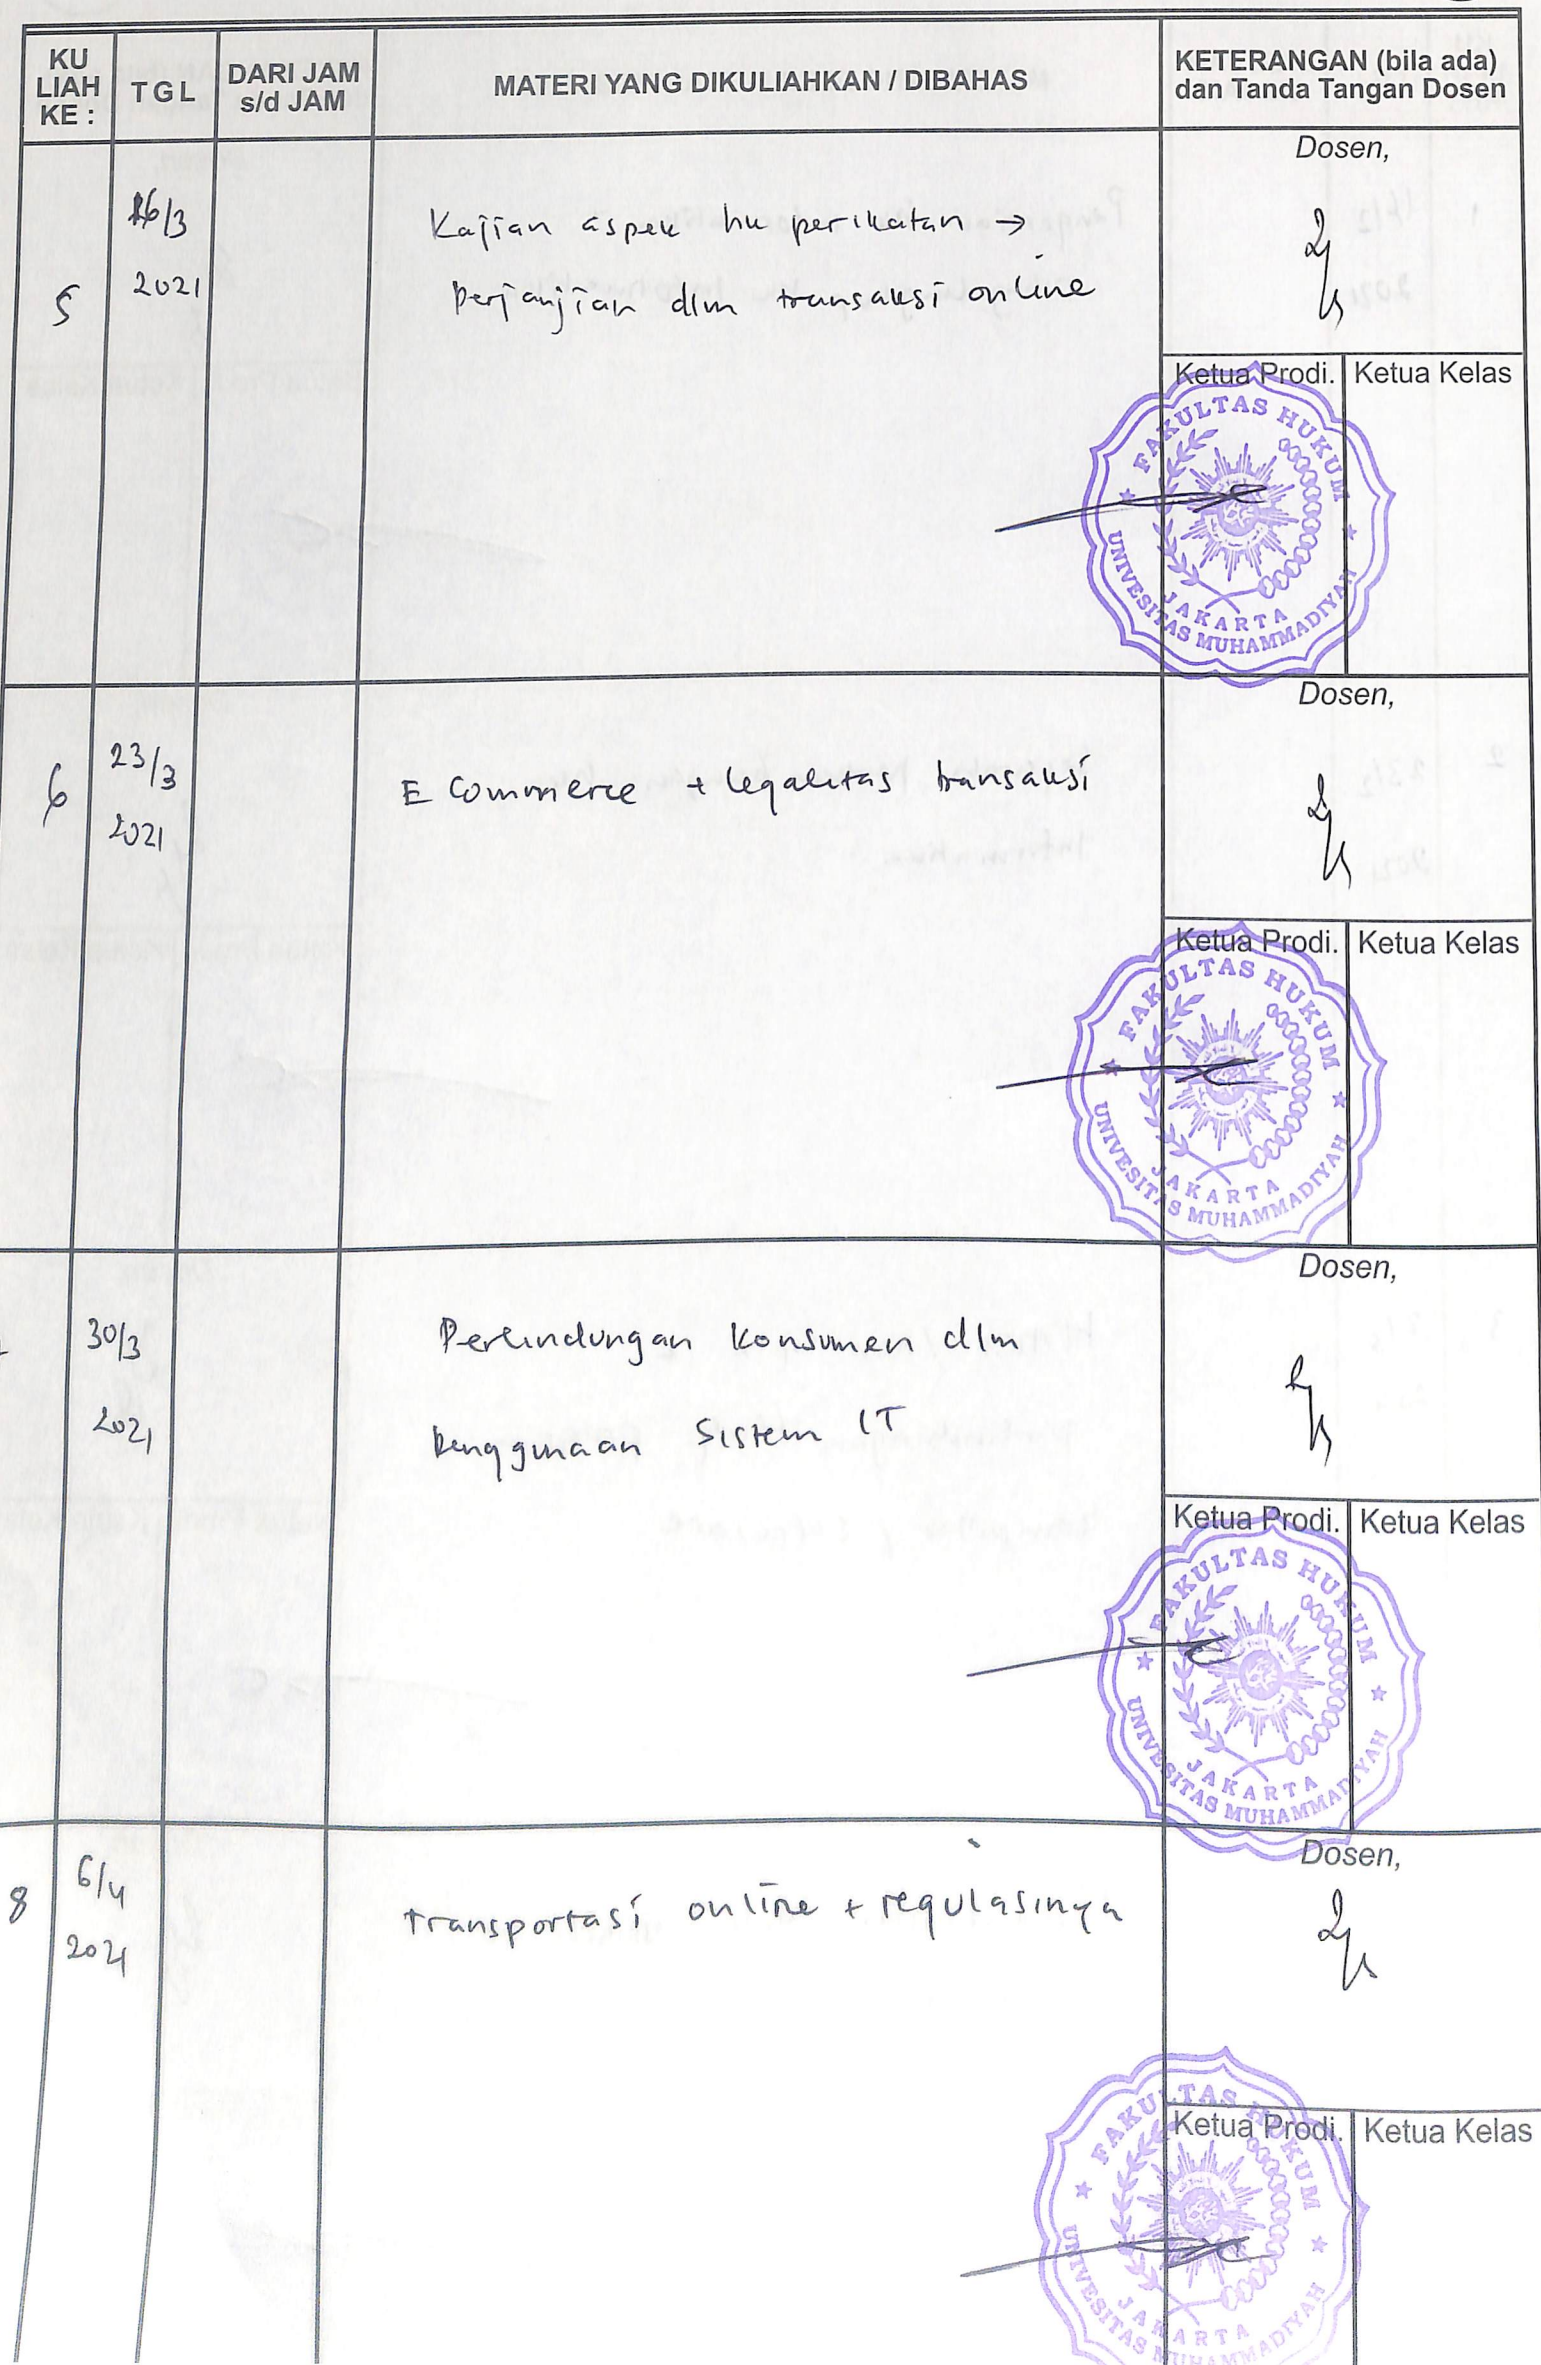 KU
LIAH
KE :
TGL
DARI JAM
s/d JAM
MATERI YANG DIKULIAHKAN / DIBAHAS
KETERANGAN (bila ada)
dan Tanda Tangan Dosen
Dosen,
5
16/3
2021
Kajian aspek hk perikatan →
perjanjian dlm transaksi online
Ketua Prodi.
Ketua Kelas
FAKULTAS HUKUM
JAKARTA
UNIVESITAS MUHAMMADIYAH
Dosen,
6
23/3
2021
E Commerce + legalitas transaksi
Ketua Prodi.
Ketua Kelas
FAKULTAS HUKUM
JAKARTA
UNIVESITAS MUHAMMADIYAH
Dosen,
30/3
2021
Perlindungan konsumen dlm
penggunaan sistem IT
Ketua Prodi.
Ketua Kelas
FAKULTAS HUKUM
JAKARTA
UNIVESITAS MUHAMMADIYAH
Dosen,
8
6/4
2021
transportasi online + regulasinya
Ketua Prodi.
Ketua Kelas
FAKULTAS HUKUM
JAKARTA
UNIVESITAS MUHAMMADIYAH